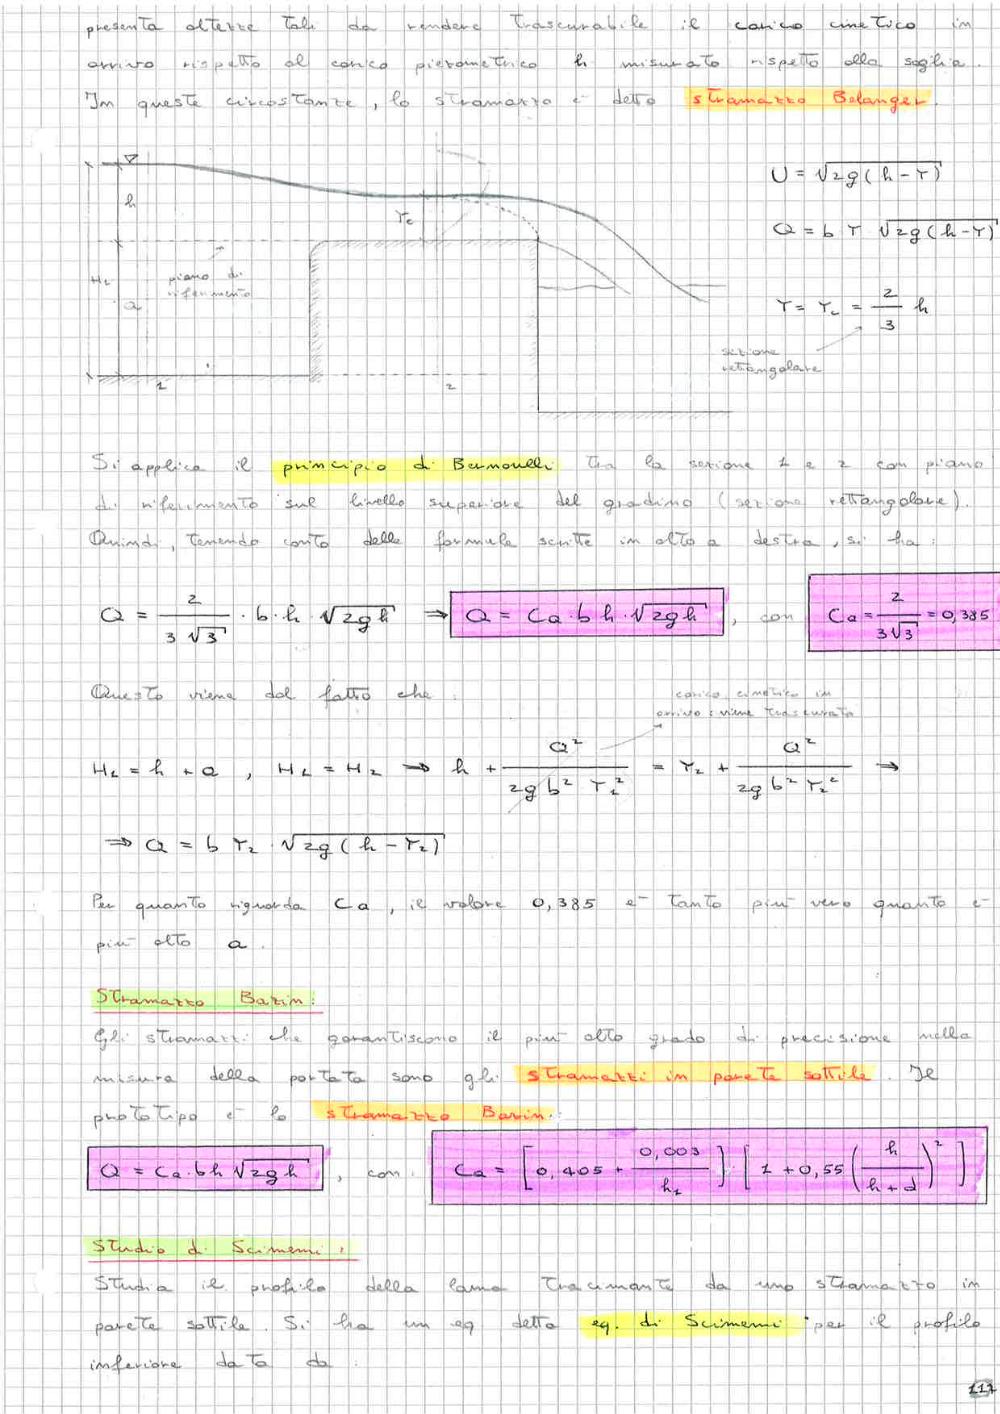 presenta altezze tali da rendere trascurabile il carico cinetico in
arrivo rispetto al carico piezometrico h misurato rispetto alla soglia.
In queste circostanze, lo stramazzo è detto stramazzo Belanger.
U = √2g(h-Y)
h
Yc
Q = b Y √2g(h-Y)
H1
piano di
riferimento
a
Y = Yc = 2/3 h
sezione
rettangolare
1
2
Si applica il principio di Bernoulli tra la sezione 1 e 2 con piano
di riferimento sul livello superiore del gradino (sezione rettangolare).
Quindi, tenendo conto delle formule scritte in alto a destra, si ha:
Q = 2/(3√3) · b · h · √2gh ⇒ Q = Ca · b h · √2gh , con Ca = 2/(3√3) = 0,385
Questo viene dal fatto che:
carico cinetico in
arrivo: viene trascurato
H1 = h + a , H1 = H2 ⇒ h + Q²/(2g b² Y1²) = Y2 + Q²/(2g b² Y2²) ⇒
⇒ Q = b Y2 · √2g(h-Y2)
Per quanto riguarda Ca, il valore 0,385 è tanto più vero quanto è
più alto a.
Stramazzo Bazin:
Gli stramazzi che garantiscono il più alto grado di precisione nella
misura della portata sono gli stramazzi in parete sottile. Il
prototipo è lo stramazzo Bazin:
Q = Ca · bh √2gh , con: Ca = [0,405 + 0,003/h1] · [1 + 0,55 (h/(h+d))²]
Studio di Scimemi:
Studia il profilo della lama tracimante da uno stramazzo in
parete sottile. Si ha un eq detta eq. di Scimemi per il profilo
inferiore data da:
111